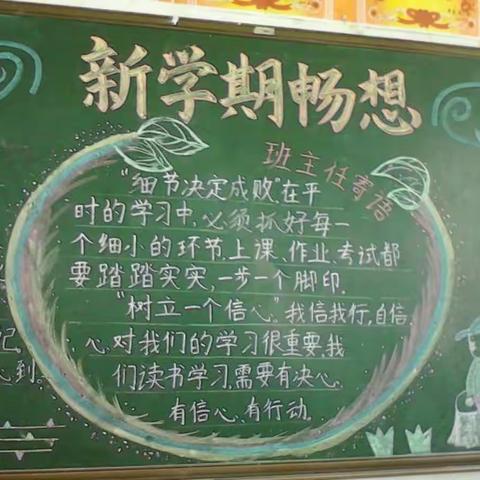 新学期畅想
班主任寄语
"细节决定成败"在平
时的学习中,必须抓好每一
个细小的环节,上课、作业、考试都
要踏踏实实,一步一个脚印.
"树立一个信心"我信我行,自信
心对我们的学习很重要,我
们读书学习,需要有决心.
有信心、有行动.
记,
到.